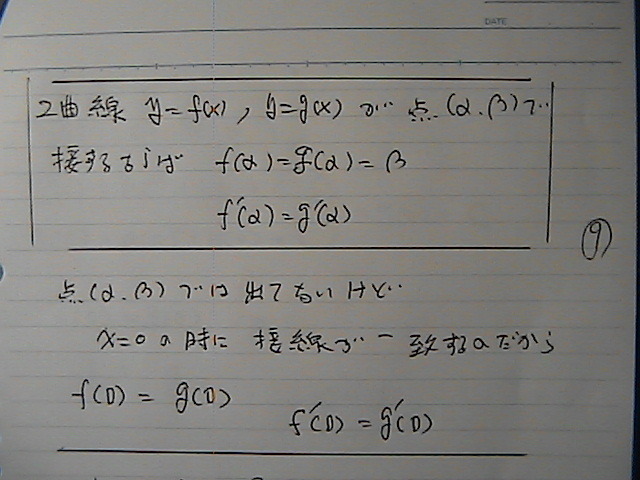 DATE
2曲線 y=f(x), y=g(x) が 点(α.β)で
接するならば f(α)=g(α)=β
f'(α)=g'(α)
⑨
点(α.β)では 出てないけど
x=0の時に 接線が一致するのだから
f(0) = g(0)
f'(0) = g'(0)